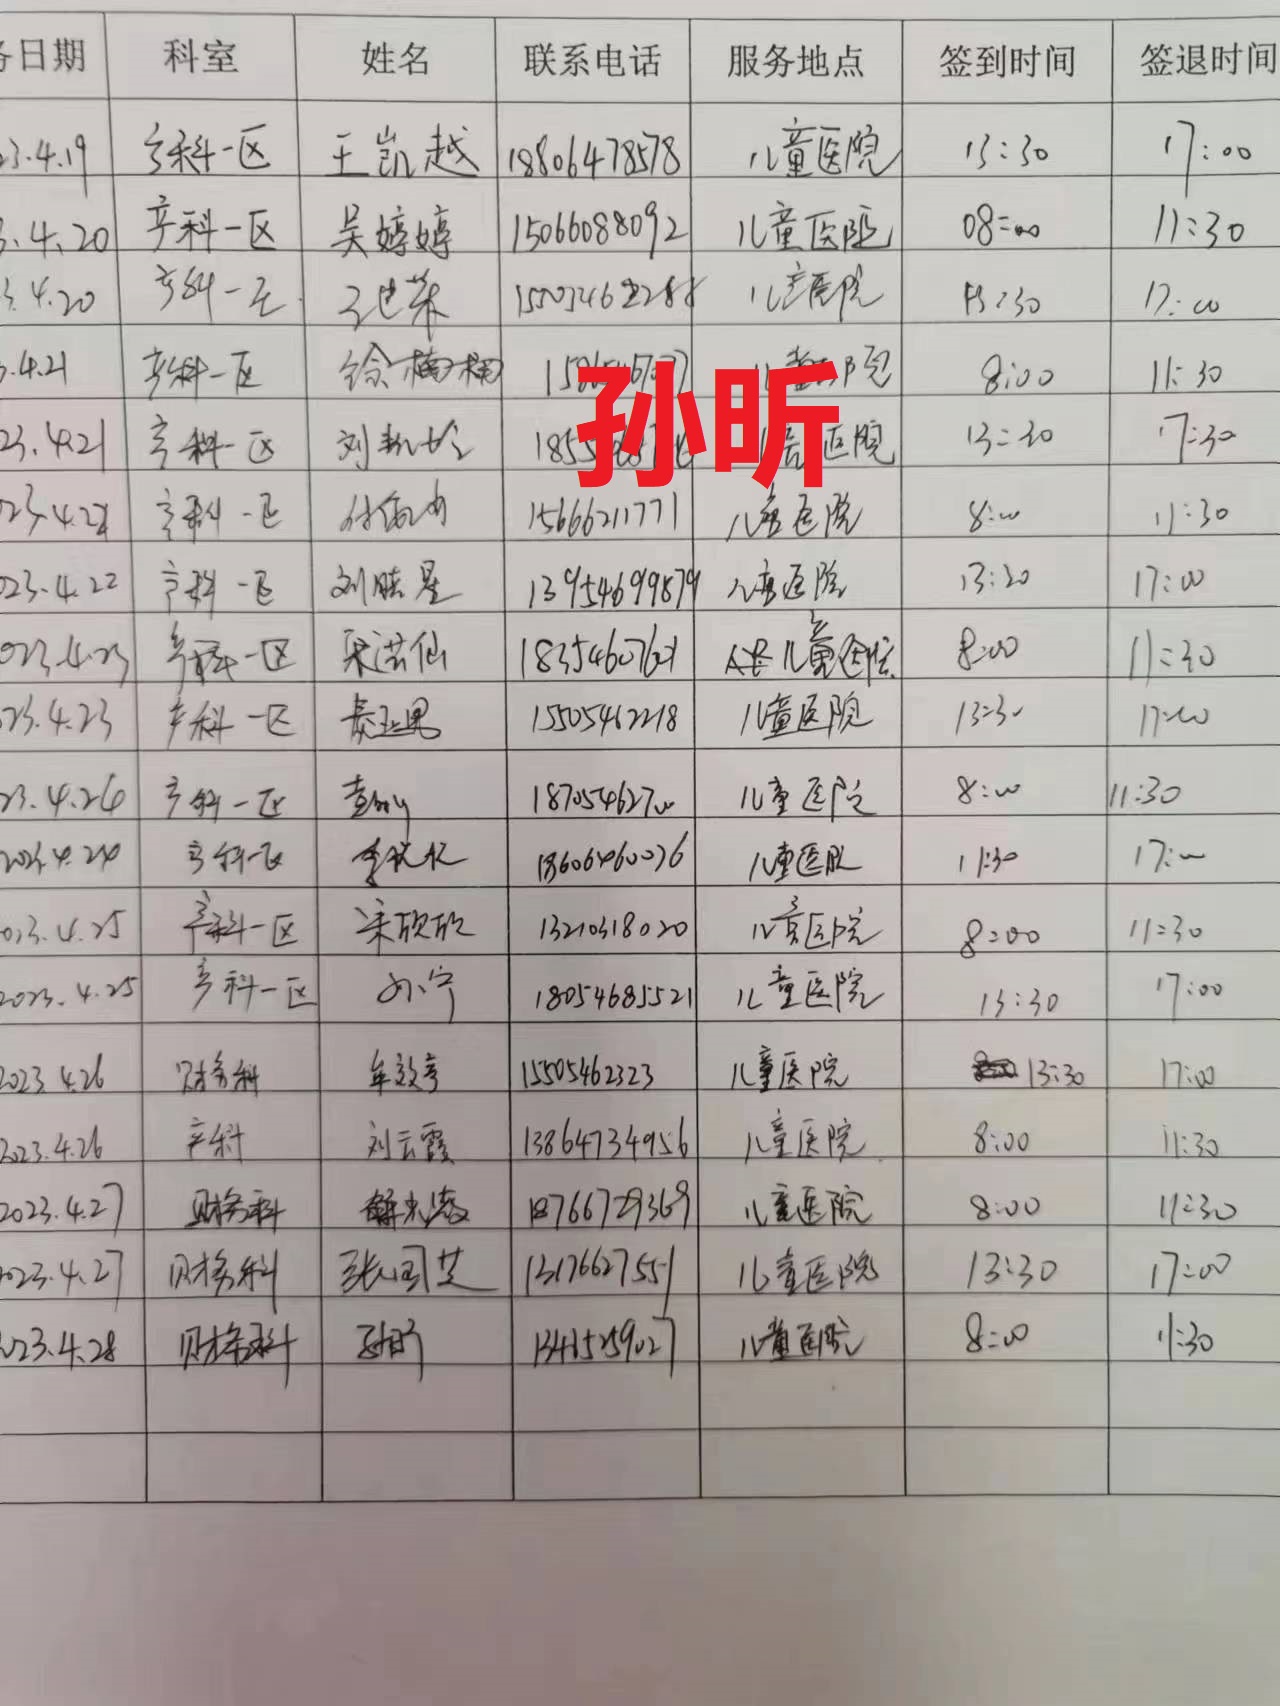 务日期 科室 姓名 联系电话 服务地点 签到时间 签退时间
23.4.19 产科一区 王凯越 18806478578 儿童医院 13:30 17:00
3.4.20 产科一区 吴婷婷 15066088092 儿童医院 08:00 11:30
3.4.20 产科一区 儿童医院 13:30 17:00
3.4.21 产科一区 徐楠楠 儿童医院 8:00 11:30
孙昕
23.4.21 产科一区 儿童医院 13:30 17:30
023.4.22 产科一区 15666211771 儿童医院 8:00 11:30
023.4.22 产科一区 刘晓星 13954699879 儿童医院 13:30 17:00
023.4.23 产科一区 宋诺仙 18354607601 儿童医院 8:00 11:30
023.4.23 产科一区 15505462218 儿童医院 13:30 17:00
23.4.24 产科一区 18705462700 儿童医院 8:00 11:30
2023.4.24 产科一区 18606460036 儿童医院 17:00
2023.4.25 产科一区 宋欣欣 13210318020 儿童医院 8:00 11:30
2023.4.25 产科一区 孙宁 18054685521 儿童医院 13:30 17:00
2023.4.26 财务科 牟效亭 15505462323 儿童医院 13:30 17:00
2023.4.26 产科 刘云霞 13864734956 儿童医院 8:00 11:30
2023.4.27 财务科 18766729369 儿童医院 8:00 11:30
2023.4.27 财务科 张国芝 13176627551 儿童医院 13:30 17:00
2023.4.28 财务科 孙昕 13415259027 儿童医院 8:00 11:30